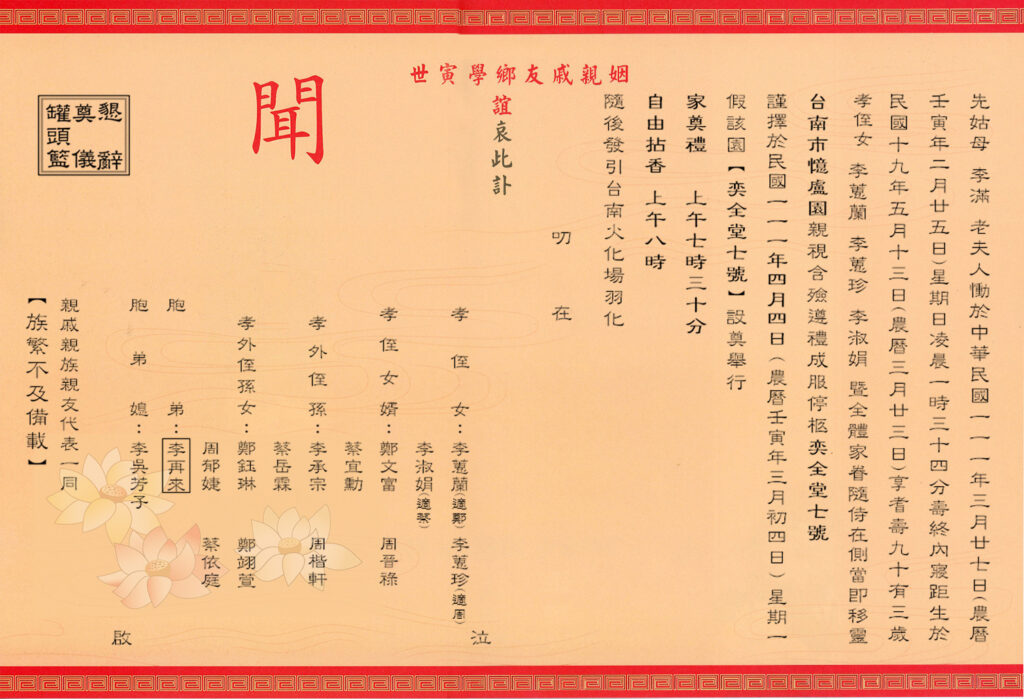 先姑母 李滿 老夫人慟於中華民國一一一年三月廿七日(農曆
壬寅年二月廿五日)星期日凌晨一時三十四分壽終內寢距生於
民國十九年五月十三日(農曆三月廿三日)享耆壽九十有三歲
孝侄女 李蕙蘭 李蕙珍 李淑娟 暨全體家眷隨侍在側當即移靈
台南市憶盧園親視含殮遵禮成服停柩奕全堂七號
謹擇於民國一一一年四月四日(農曆壬寅年三月初四日)星期一
假該園【奕全堂七號】設奠舉行
家奠禮 上午七時三十分
自由拈香 上午八時
隨後發引台南火化場羽化
叨在
姻親戚友鄉學寅世
誼哀此訃
聞
懇辭
奠儀
罐頭籃
孝侄女:李蕙蘭(適鄭) 李蕙珍(適周)
李淑娟(適蔡)
泣
孝侄女婿:鄭文富 周晉祿
蔡宜勳
孝外侄孫:李承宗 周楷軒
蔡岳霖
孝外侄孫女:鄭鈺琳 鄭翊萱
周郁婕 蔡依庭
胞弟:李再來
胞弟媳:李吳芳子
啟
親戚親族親友代表一同
【族繁不及備載】